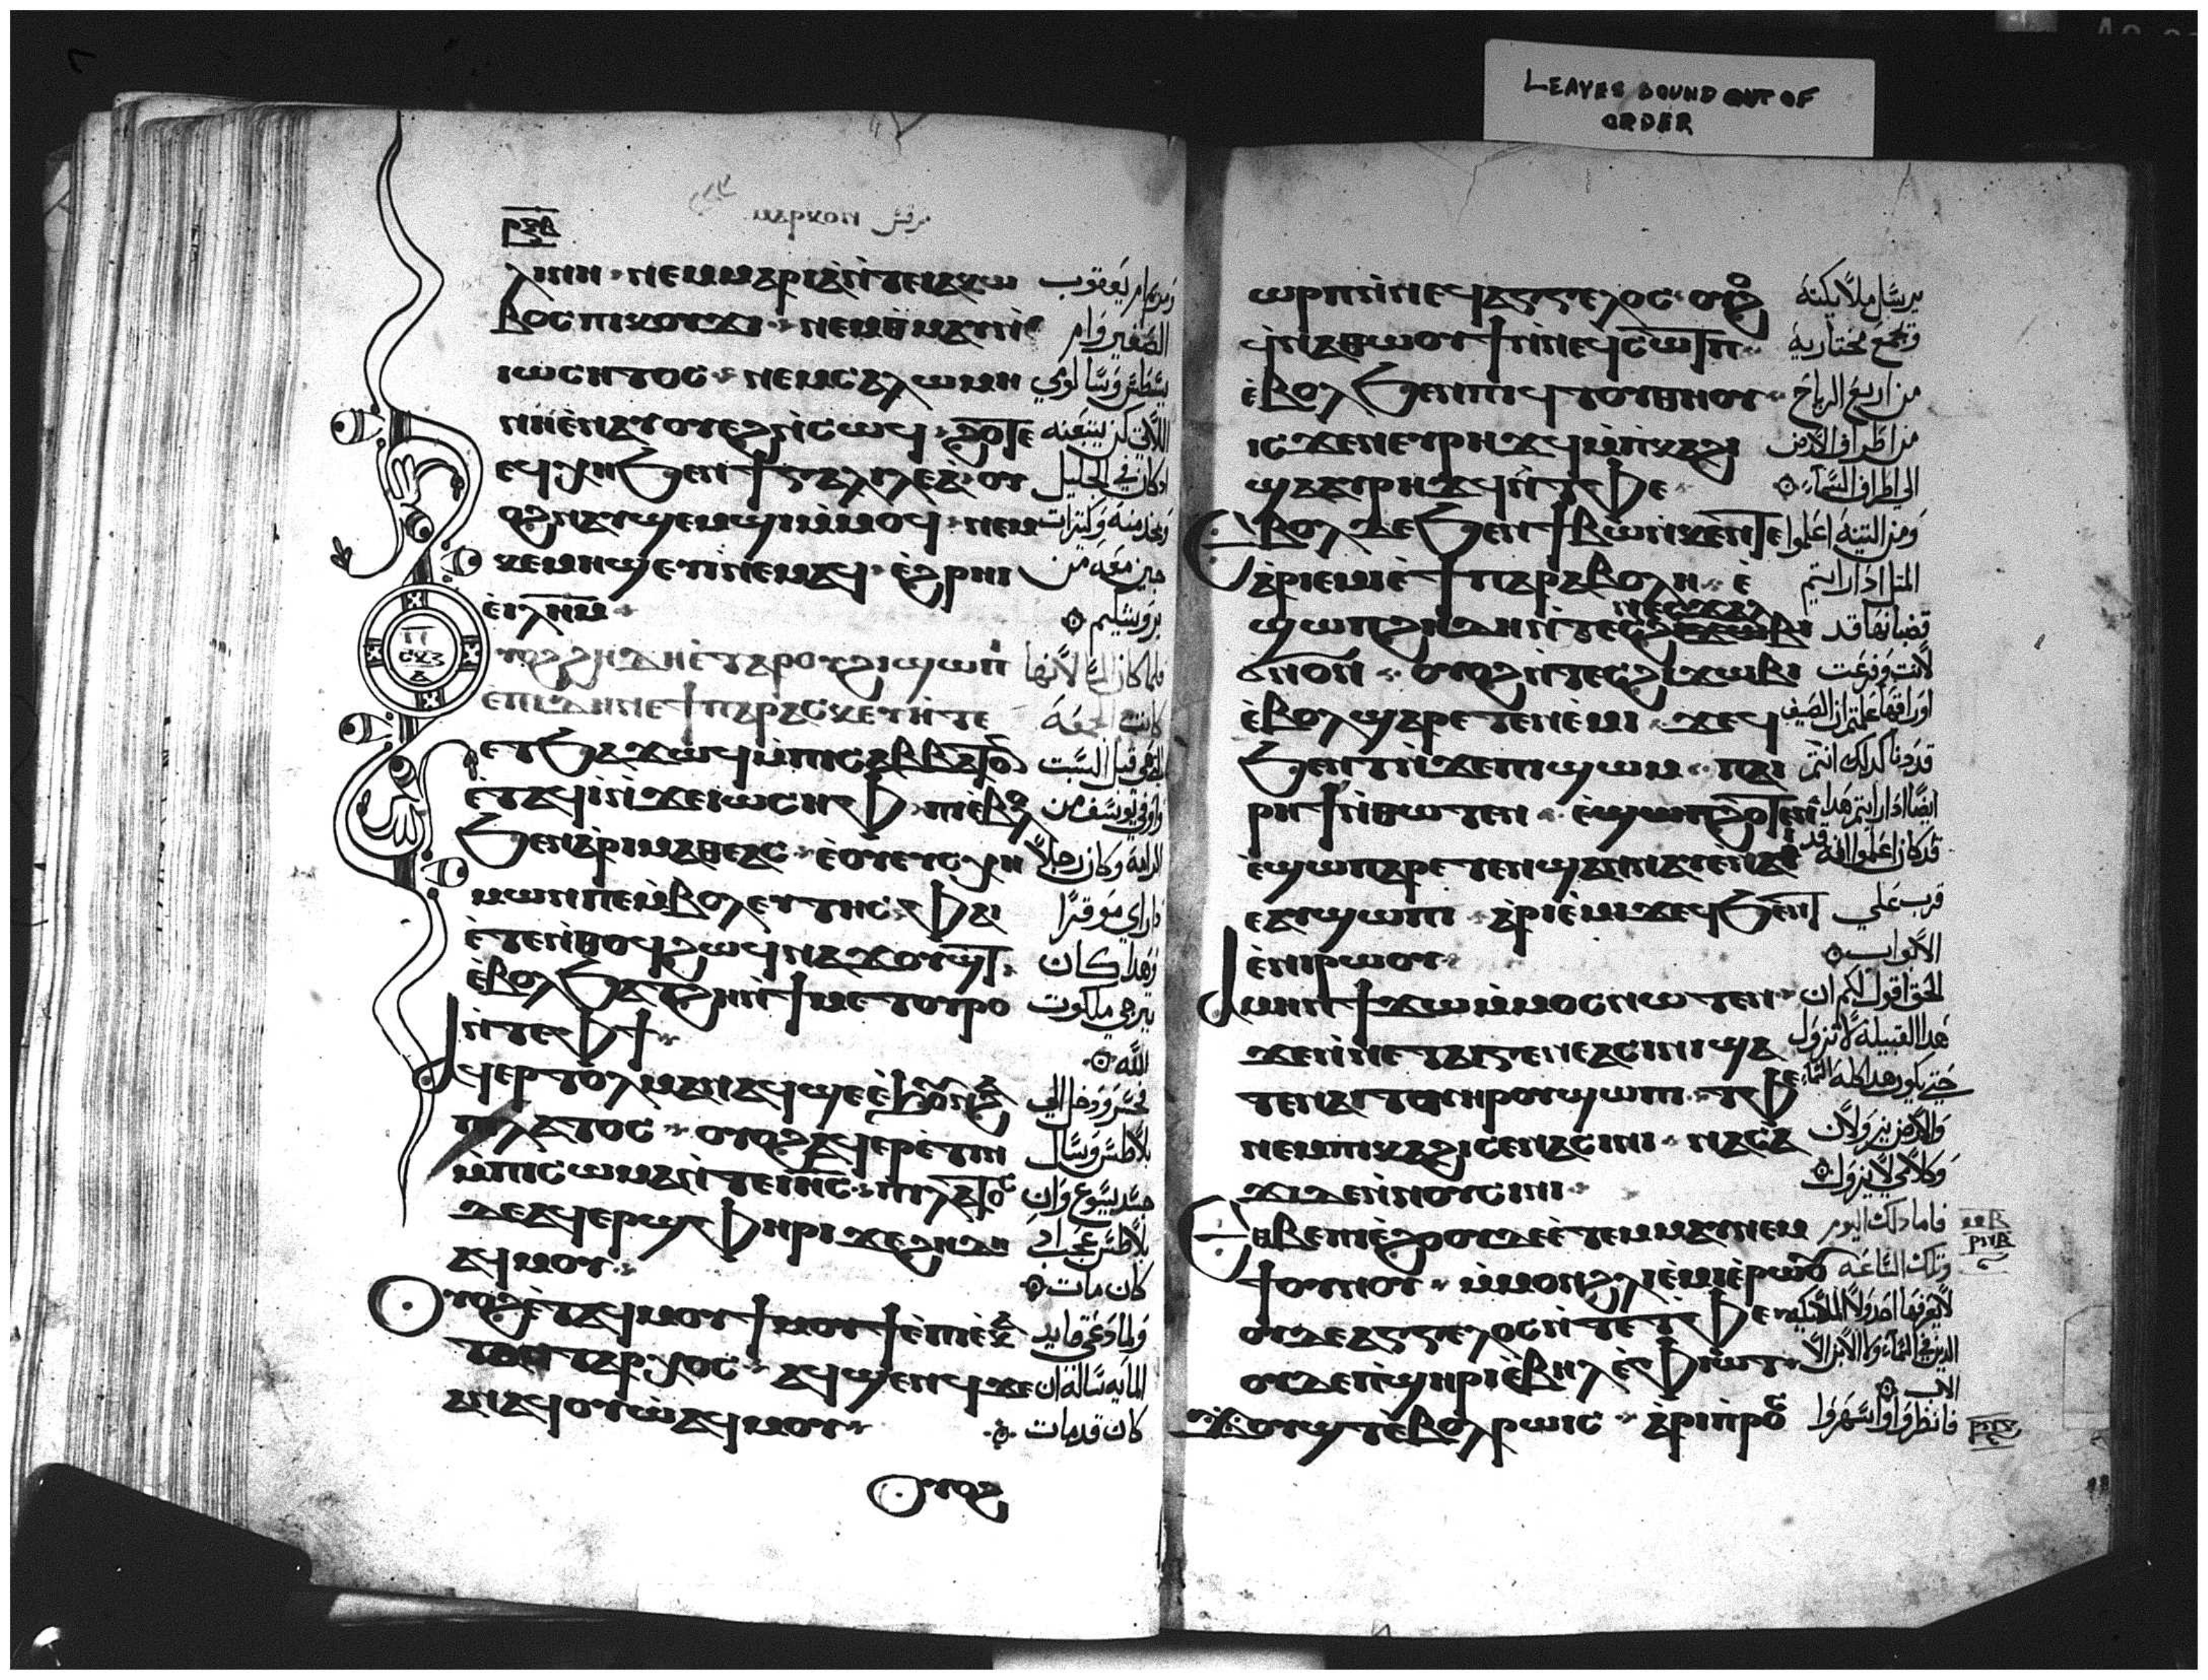 LEAVES BOUND OUT OF
ORDER
ⲙⲁⲣⲕⲟⲛ مرقس
ⲗⲓⲛⲏ ⲛⲉⲙ ⲙⲁⲣⲓⲁ ⲛ̀ⲧⲉ ⲓⲁⲕⲱ ومريم ام يعقوب
ⲃⲟⲥ ⲡⲓⲕⲟⲩϫⲓ ⲛⲉⲙ ⲑ̀ⲙⲁⲩ ⲛ̀ الصغير وام
ⲓⲱⲥⲏⲧⲟⲥ ⲛⲉⲙ ⲥⲁⲗⲱⲙⲏ
ⲛⲏ ⲉ̀ⲛⲁⲩⲟⲩⲉϩ ⲛ̀ⲥⲱϥ ϩⲟϯⲉ اللاتي كن يتبعنه
ⲉϥⲭⲏ ϧⲉⲛ ϯⲅⲁⲗⲓⲗⲉⲁ̀ ⲟⲩ اذ كان في الجليل
ⲟϩ ⲛⲁⲩϣⲉⲙϣⲓ ⲙ̀ⲙⲟϥ ⲛⲉⲙ
ⲕⲉⲙⲏϣ ⲉⲩⲓ̀ ⲛⲉⲙⲁϥ ⲉ̀ϩⲣⲏⲓ جين معه من
ⲉ̀ⲓⲗ̅ⲏ̅ⲙ̅ يروشليم
ⲟⲩⲟϩ ϩⲏⲇⲏ ⲉ̀ⲧⲁ ⲣⲟⲩϩⲓ ϣⲱⲡⲓ فلما كان المسا لانها
ⲉ̀ⲡⲓⲇⲏ ⲛⲉ ϯⲡⲁⲣⲁⲥⲕⲉⲩⲏ ⲧⲉ كانت الجمعة
ⲉⲧϧⲁϫⲱϥ ⲙ̀ⲡⲓⲥⲁⲃⲃⲁⲧⲟⲛ التي قبل السبت
ⲉ̀ⲧⲁϥⲓ̀ ⲛ̀ϫⲉ ⲓⲱⲥⲏⲫ ⲡⲓⲉ̀ⲃⲟⲗ وافى يوسف من
ϧⲉⲛ ⲁ̀ⲣⲓⲙⲁⲑⲉⲁⲥ ⲉ̀ⲟⲩⲉⲩⲥⲭⲏ الرامة وكان رجلا
ⲙⲱⲛ ⲡⲉ ⲙ̀ⲃⲟⲩⲗⲉⲩⲧⲏⲥ ⲫⲁⲓ ذا راي موقرا
ⲉ̀ⲧⲉ ⲛ̀ⲑⲟϥ ϩⲱϥ ⲛⲁϥϫⲟⲩϣⲧ وهذا كان
ⲉ̀ⲃⲟⲗ ϧⲁⲧϩⲏ ⲛ̀ϯⲙⲉⲧⲟⲩⲣⲟ يترجى ملكوت
ⲛ̀ⲧⲉ ⲫϯ الله
ⲁϥⲉⲣⲧⲟⲗⲙⲁⲛ ⲁϥϣⲉ ⲉ̀ϧⲟⲩⲛ ϩⲁ فجسر ودخل الى
ⲡⲓⲗⲁⲧⲟⲥ ⲟⲩⲟϩ ⲁϥⲉⲣⲉ̀ⲧⲓⲛ بيلاطس وسال
ⲙ̀ⲡⲓⲥⲱⲙⲁ ⲛ̀ⲧⲉ ⲓⲏ̅ⲥ̅ ⲡⲓⲗⲁⲧⲟⲥ جسد يسوع وان
ⲇⲉ ⲁϥⲉⲣϣⲫⲏⲣⲓ ϫⲉ ϩⲏⲇⲏ بيلاطس عجب اذ
ⲁϥⲙⲟⲩ كان مات
ⲟⲩⲟϩ ⲉ̀ⲧⲁϥⲙⲟⲩϯ ⲉ̀ⲡⲓⲉ̀ⲕⲁ ولما دعي قايد
ⲧⲟⲛⲧⲁⲣⲭⲟⲥ ⲁϥϣⲉⲛϥ ϫⲉ الماية ساله ان
ⲁⲛ ⲁϥⲟⲩⲱ ⲁϥⲙⲟⲩ كان قد مات
ⲟⲩⲟϩ
ⲱⲣⲡ ⲛ̀ⲛⲉϥⲁⲅⲅⲉⲗⲟⲥ ⲟⲩⲟϩ يرسل ملايكته
ϥⲛⲁⲑⲱⲟⲩϯ ⲛ̀ⲛⲉϥⲥⲱⲧⲡ ويجمع مختاريه
ⲉ̀ⲃⲟⲗ ϧⲉⲛ ⲡⲓϥⲧⲟⲩ ⲑⲏⲟⲩ من اربع الرياح
ⲓⲥϫⲉⲛ ⲉⲩⲣⲏϫϥ ⲙ̀ⲡⲕⲁϩⲓ من اطراف الارض
ϣⲁ ⲁⲩⲣⲏϫϥ ⲛ̀ⲧⲫⲉ الى اطراف السماء
ⲉⲃⲟⲗ ⲇⲉ ϧⲉⲛ ϯⲃⲱ ⲛ̀ⲕⲉⲛⲧⲉ ومن التينة اعلموا
ⲁ̀ⲣⲓⲉ̀ⲙⲓ ⲉ̀ϯⲡⲁⲣⲁⲃⲟⲗⲏ ⲉ̀ المثل اذا رايتم
ϣⲱⲡ ϩⲏⲇⲏ ⲛ̀ⲧⲉ ⲛⲉⲥϫⲁⲗ قضبانها قد
ϭⲛⲟⲛ ⲟⲩⲟϩ ⲛ̀ⲧⲉⲥϩⲓϫⲱⲃⲓ لانت وفرعت
ⲉ̀ⲃⲟⲗ ϣⲁⲣⲉⲧⲉⲛⲉ̀ⲙⲓ ϫⲉ ϥ اوراقها علمتم ان الصيف
ϧⲉⲛⲧ ⲛ̀ϫⲉ ⲡⲓϣⲱⲙ ⲡⲁⲓ قد دنا كذلك انتم
ⲣⲏϯ ⲛ̀ⲑⲱⲧⲉⲛ ⲉ̀ϣⲱⲡ ϩⲱⲧⲉⲛ ايضا اذا رايتم هذا
ⲉ̀ϣⲱⲡ ⲁⲣⲉⲧⲉⲛϣⲁⲛⲛⲁⲩ ⲉ̀ⲛⲁⲓ قد كان اعلموا انه قد
ⲉⲁⲩϣⲱⲡⲓ ⲁ̀ⲣⲓⲉ̀ⲙⲓ ϫⲉ ϥϧⲉⲛⲧ قرب على
ⲉ̀ⲛⲓⲣⲱⲟⲩ الابواب
ⲁⲙⲏⲛ ϯϫⲱ ⲙ̀ⲙⲟⲥ ⲛⲱⲧⲉⲛ الحق اقول لكم ان
ϫⲉ ⲛ̀ⲛⲉ ⲧⲁⲓⲅⲉⲛⲉⲁ ⲥⲓⲛⲓ ϣⲁ هذا القبيلة لا تزول
ⲧⲉ ⲛⲁⲓ ⲧⲏⲣⲟⲩ ϣⲱⲡⲓ ⲧⲫⲉ حتى يكون هذا كله السماء
ⲛⲉⲙ ⲡⲓⲕⲁϩⲓ ⲥⲉⲛⲁⲥⲓⲛⲓ ⲛⲁⲥⲁ والارض يزولان
ϫⲓ ⲇⲉ ⲛ̀ⲛⲟⲩⲥⲓⲛⲓ وكلامي لا يزول
ⲉⲑⲃⲉ ⲡⲓⲉ̀ϩⲟⲟⲩ ⲇⲉ ⲉ̀ⲧⲉⲙⲙⲁⲩ ⲛⲉⲙ فاما ذلك اليوم
ϯⲟⲩⲛⲟⲩ ⲙ̀ⲙⲟⲛ ϩⲗⲓ ⲉ̀ⲙⲓ ⲉ̀ⲣⲱⲟⲩ وتلك الساعة
ⲟⲩⲇⲉ ⲁⲅⲅⲉⲗⲟⲥ ⲛ̀ⲧⲉ ⲧⲫⲉ لا يعرفها احد ولا الملايكة
ⲟⲩⲇⲉ ⲡ̀ϣⲏⲣⲓ ⲉ̀ⲃⲏⲗ ⲉ̀ⲫⲓⲱⲧ الذين في السماء ولا الابن الا
الاب
ϫⲟⲩϣⲧ ⲉ̀ⲃⲟⲗ ⲣⲱⲓⲥ ⲁ̀ⲣⲓⲡ̀ⲣⲟⲥ فانظروا واسهروا